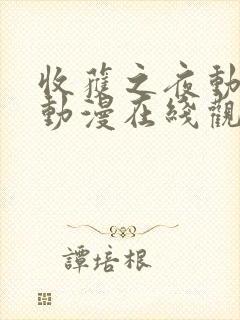 收穫之夜動
動漫在綫觀
譚培根